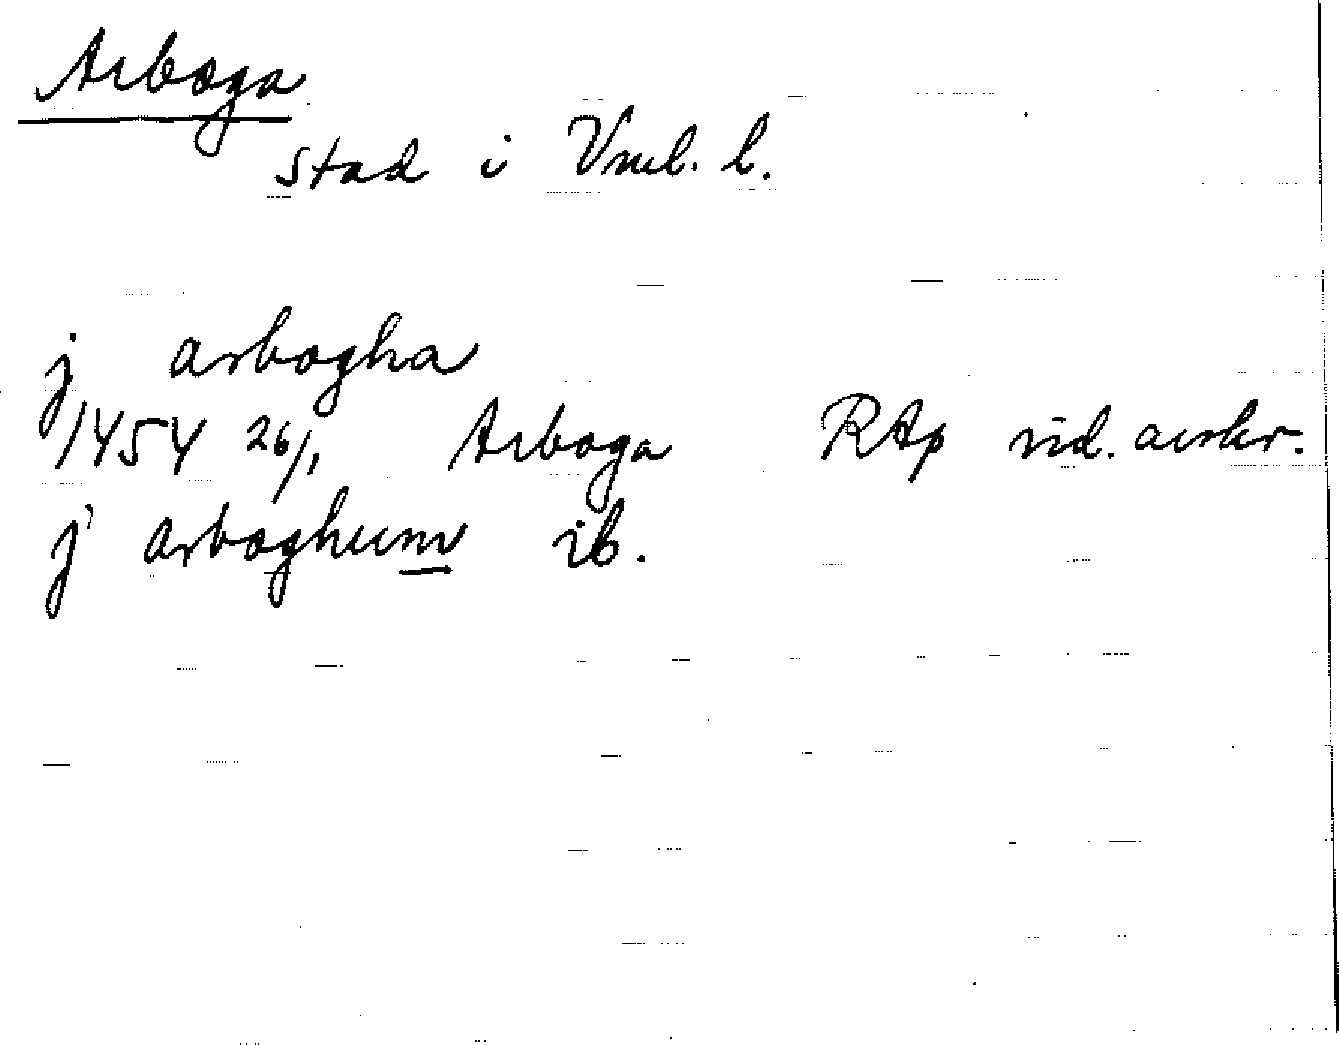 Arboga
stad i Vml. l.
j arbogha
1454 26/1 Arboga RAp vid. avskr.
j arboghum ib.